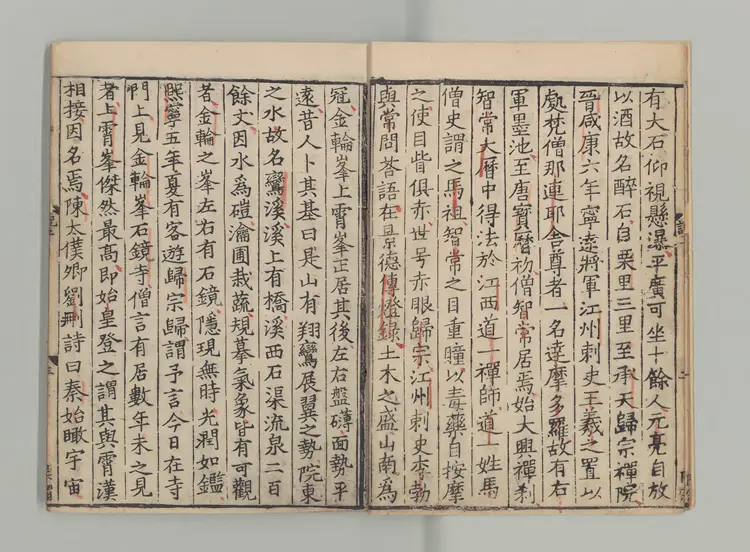 有大石仰視懸瀑平廣可坐十餘人元亮自放
以酒故名醉石自栗里三里至承天歸宗禪院
晉咸康六年寧逺將軍江州刺史王羲之置以
處梵僧那連耶舍尊者一名達摩多羅故有右
軍墨池至唐寳曆初僧智常居焉始大興禪刹
智常大曆中得法於江西道一禪師道一姓馬
僧史謂之馬祖智常之目重瞳以毒藥自按摩
之使目眥俱赤世号赤眼歸宗江州刺史李勃
與常問荅語在景德傳燈錄土木之盛山南爲
冠金輪峯上霄峯正居其後左右盤礴面勢平
逺昔人卜其基曰是山有翔鸞展翼之勢院東
之水故名鸞溪溪上有橋溪西石渠流泉二百
餘丈因水爲磑瀹圃栽蔬規摹氣象皆有可觀
者金輪之峯左右有石鏡隱現無時光潤如鑑
熙寧五年夏有客遊歸宗歸謂予言今日在寺
門上見金輪峯石鏡寺僧言有居數年未之見
者上霄峯傑然最高即始皇登之謂其與霄漢
相接因名焉陳太僕卿劉刪詩曰秦始瞰宇宙